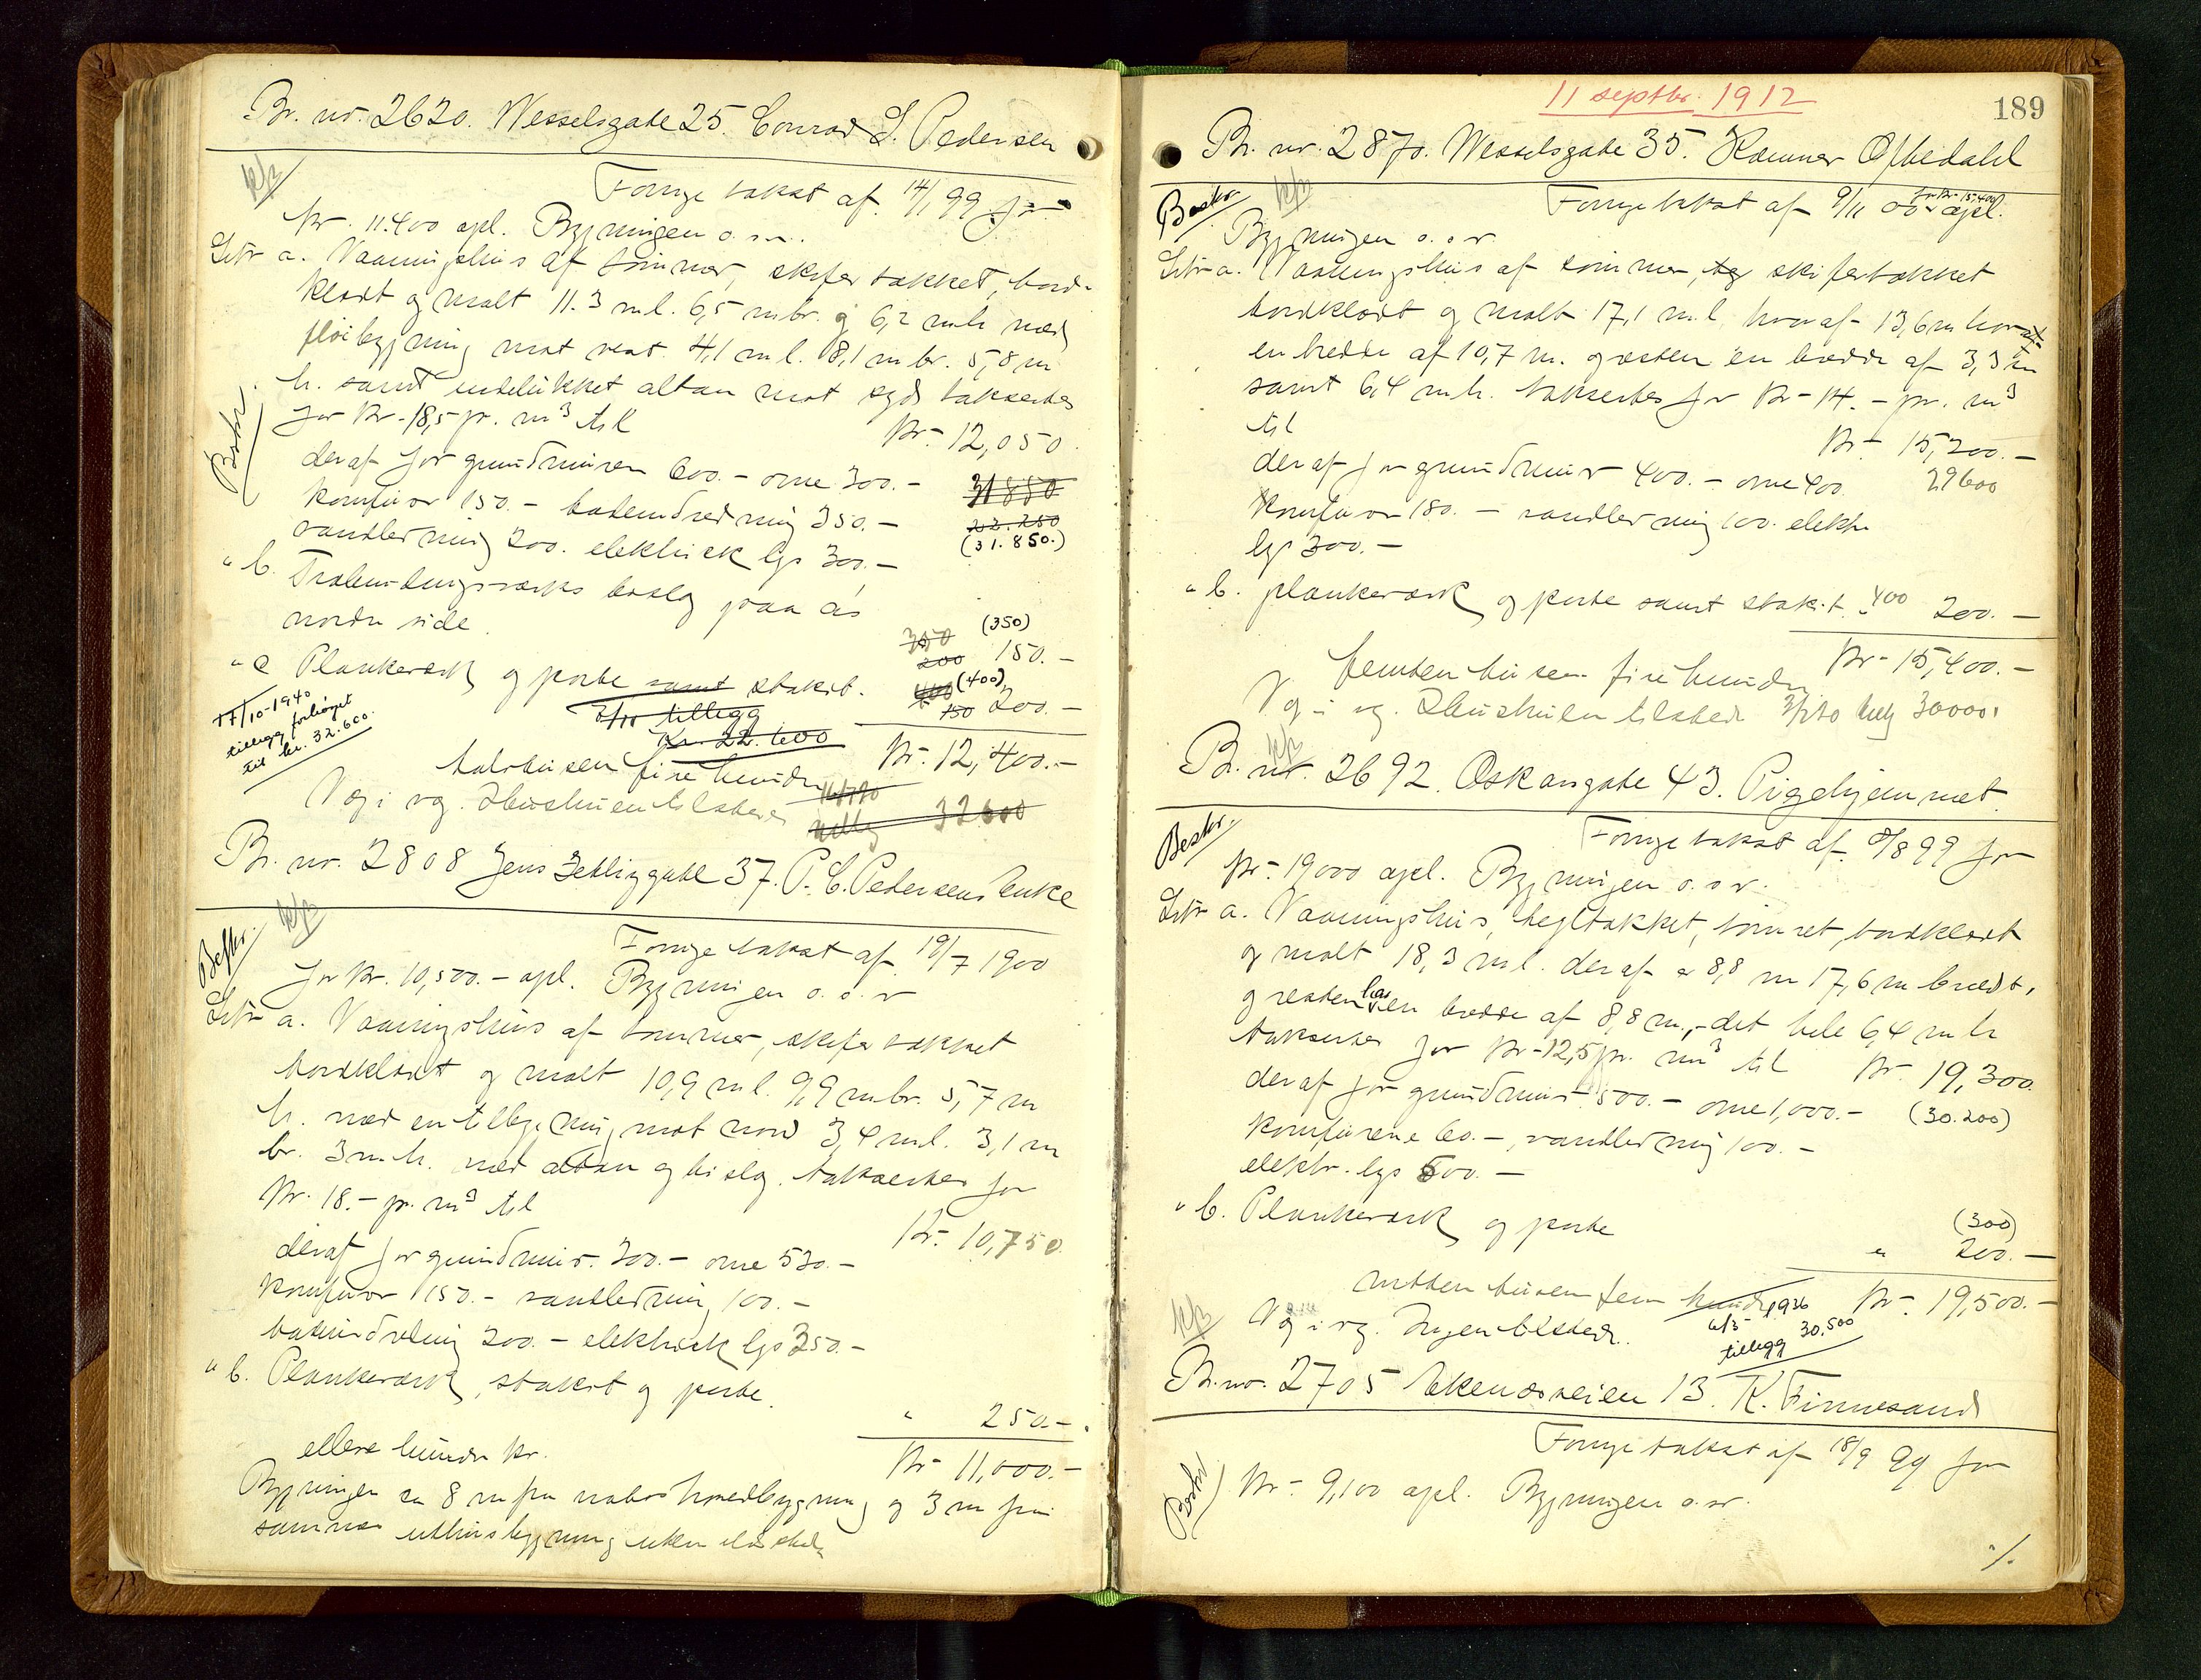 Br. nr. 2620. Wesselsgate 25. Conrad L. Pedersen
Forrige takst af 14/1 99 for
kr. 11.400 opl. Bygningen o.s.v.
Litr a. Vaaningshus af tømmer, skifertækket, bord-
klædt og malt 11.3 m l. 6,5 m br. og 6,2 m h. med
fløibygning mot vest 4,1 m l. 8,1 m br. 5,8 m
h. samt indelukket altan mot syd takseres
for kr. 18,5 pr. m³ til Kr. 12,050
Beskr.
deraf for grundmuren 600.- ovne 300.- 31880
komfur 150.- badeindredning 350.- 22.250
vandledning 200. elektrisk lys 300.- (31.850.)
" b. Træbeslag paa
nordre side. (350)
350 200 150.-
" c Plankeværk og porte samt stakit. (400)
150 200.-
17/10-1940
tillegg forhøyet
til kr. 32.600.
3/11 tillegg
Kr. 22.600
Kr. 12,400.-
tolvtusen fire hundre
V og i vg. Ildslukker tilstede
32600
Br. nr. 2808 Jens Zetlizgate 37. P. C. Pedersens Enke
Beskr.
Forrige takst af 19/7 1900
for kr. 10,500.- opl. Bygningen o.s.v
Litr a. Vaaningshus af tømmer, skifertækket
bordklædt og malt 10,9 m l. 9,9 m br. 5,7 m
h. med en tilbygning mot nord 3,4 m l. 3,1 m
br. 3 m h. med altan og bislag. takseres for
kr. 18.- pr. m³ til Kr. 10,750
deraf for grundmur. 300.- ovne 530.-
komfur 150.- vandledning 100.-
badeindredning 200.- elektrisk lys 350.-
" b. Plankeværk, stakit og porte.
" 250.-
Kr. 11,000.-
elleve tusen kr.
Bygningen er 8 m fra nabos hovedbygning og 3 m fra
sammes uthusbygning uten ildsted
11 septbr. 1912
189
Br. nr. 2870. Wesselsgate 35. Kæmner Oftedahl
Beskr.
Forrige takst af 9/11 00 for kr. 15,400 opl.
Bygningen o.s.v
Litr a. Vaaningshus af tømmer, skifertækket
bordklædt og malt 17,1 m l. hvoraf 13,6 m hvorav
en bredde af 10,7 m. og resten en bredde af 3,3 m
samt 6,4 m h. takseres for Kr. 14.- pr. m³
til Kr. 15,200.-
deraf for grundmur 400.- ovne 400 29600
Komfur 180.- vandledning 100. elektr
lys 300.-
" b. plankeværk og porte samt stakit " 400 200.-
Kr. 15,400.-
femten tusen fire hundre
V og i vg. Ildslukker tilstede 3/2 20 tillæg 30000.
Br. nr. 2692. Oskarsgate 43. Pigehjemmet
Beskr.
Forrige takst af 9/8 99 for
kr. 19000 opl. Bygningen o.s.v.
Litr a. Vaaningshus, tegltækket, tømret, bordklædt
og malt 18,3 m l. deraf er 8,8 m 17,6 m bredt,
og resten har en bredde af 8,8 m,- det hele 6,4 m h
takseres for Kr. 12,5 pr. m³ til Kr. 19,300
deraf for grundmur 500.- ovne 1,000.- (30.200)
komfurene 60.-, vandledning 100.-
elektr. lys 500.-
" b. Plankeværk og porte (300)
" 200.-
Kr. 19,500.-
nitten tusen fem hundre
1926
6/3
tillegg 30,500
V og i vg. Ingen tilstede.
Br. nr. 2705 Ekenæsveien 13. K. Finnesand
Forrige takst af 18/9 99 for
Beskr.
Kr. 9,100 opl. Bygningen o.s.v.
./.